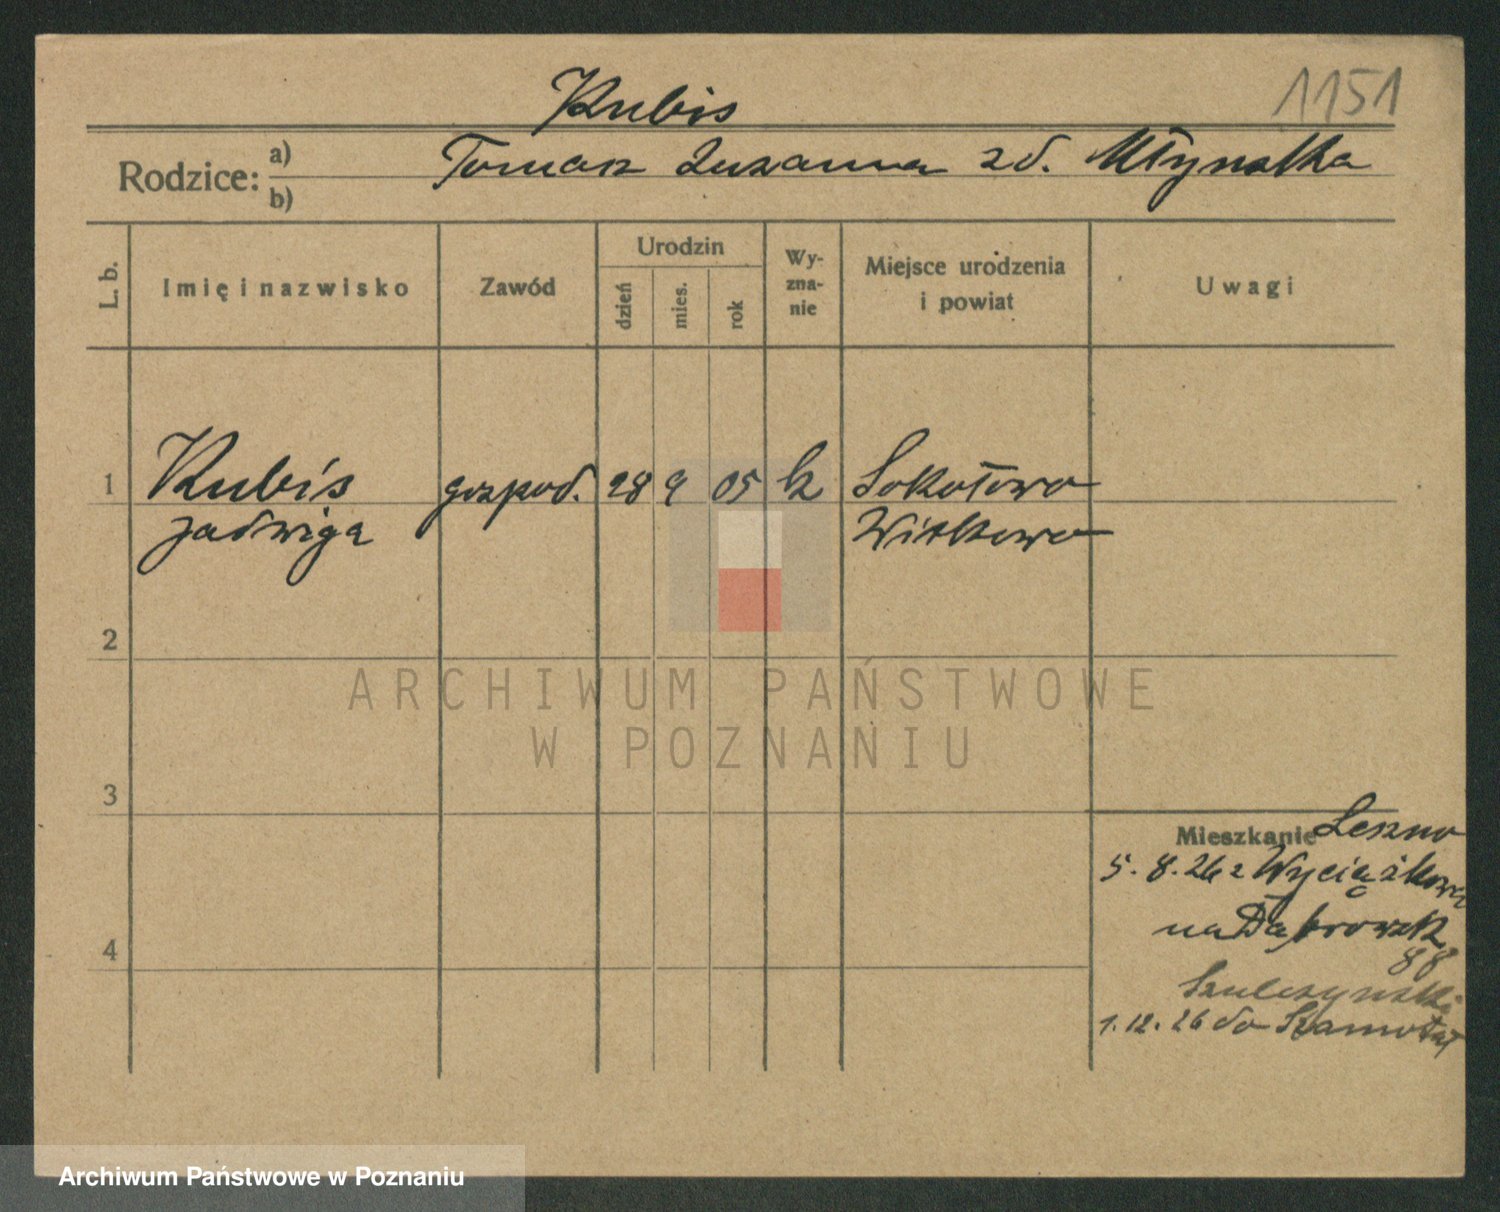 1151
Kubis
Rodzice: a) b)
Tomasz Zuzanna zd. Młynska
L. b.
Imię i nazwisko
Zawód
Urodzin
dzień
mies.
rok
Wy-
zna-
nie
Miejsce urodzenia
i powiat
Uwagi
1
Kubis gospod. 28 9 05 k Sokołowo
Jadwiga Witkowo
2
ARCHIWUM PAŃSTWOWE
W POZNANIU
3
Mieszkanie Leszno
5.8.26 z Wyciążkowa
na Dąbrowsk
88
4
Szulczynski
1.12.26 do Szamotuł
Archiwum Państwowe w Poznaniu